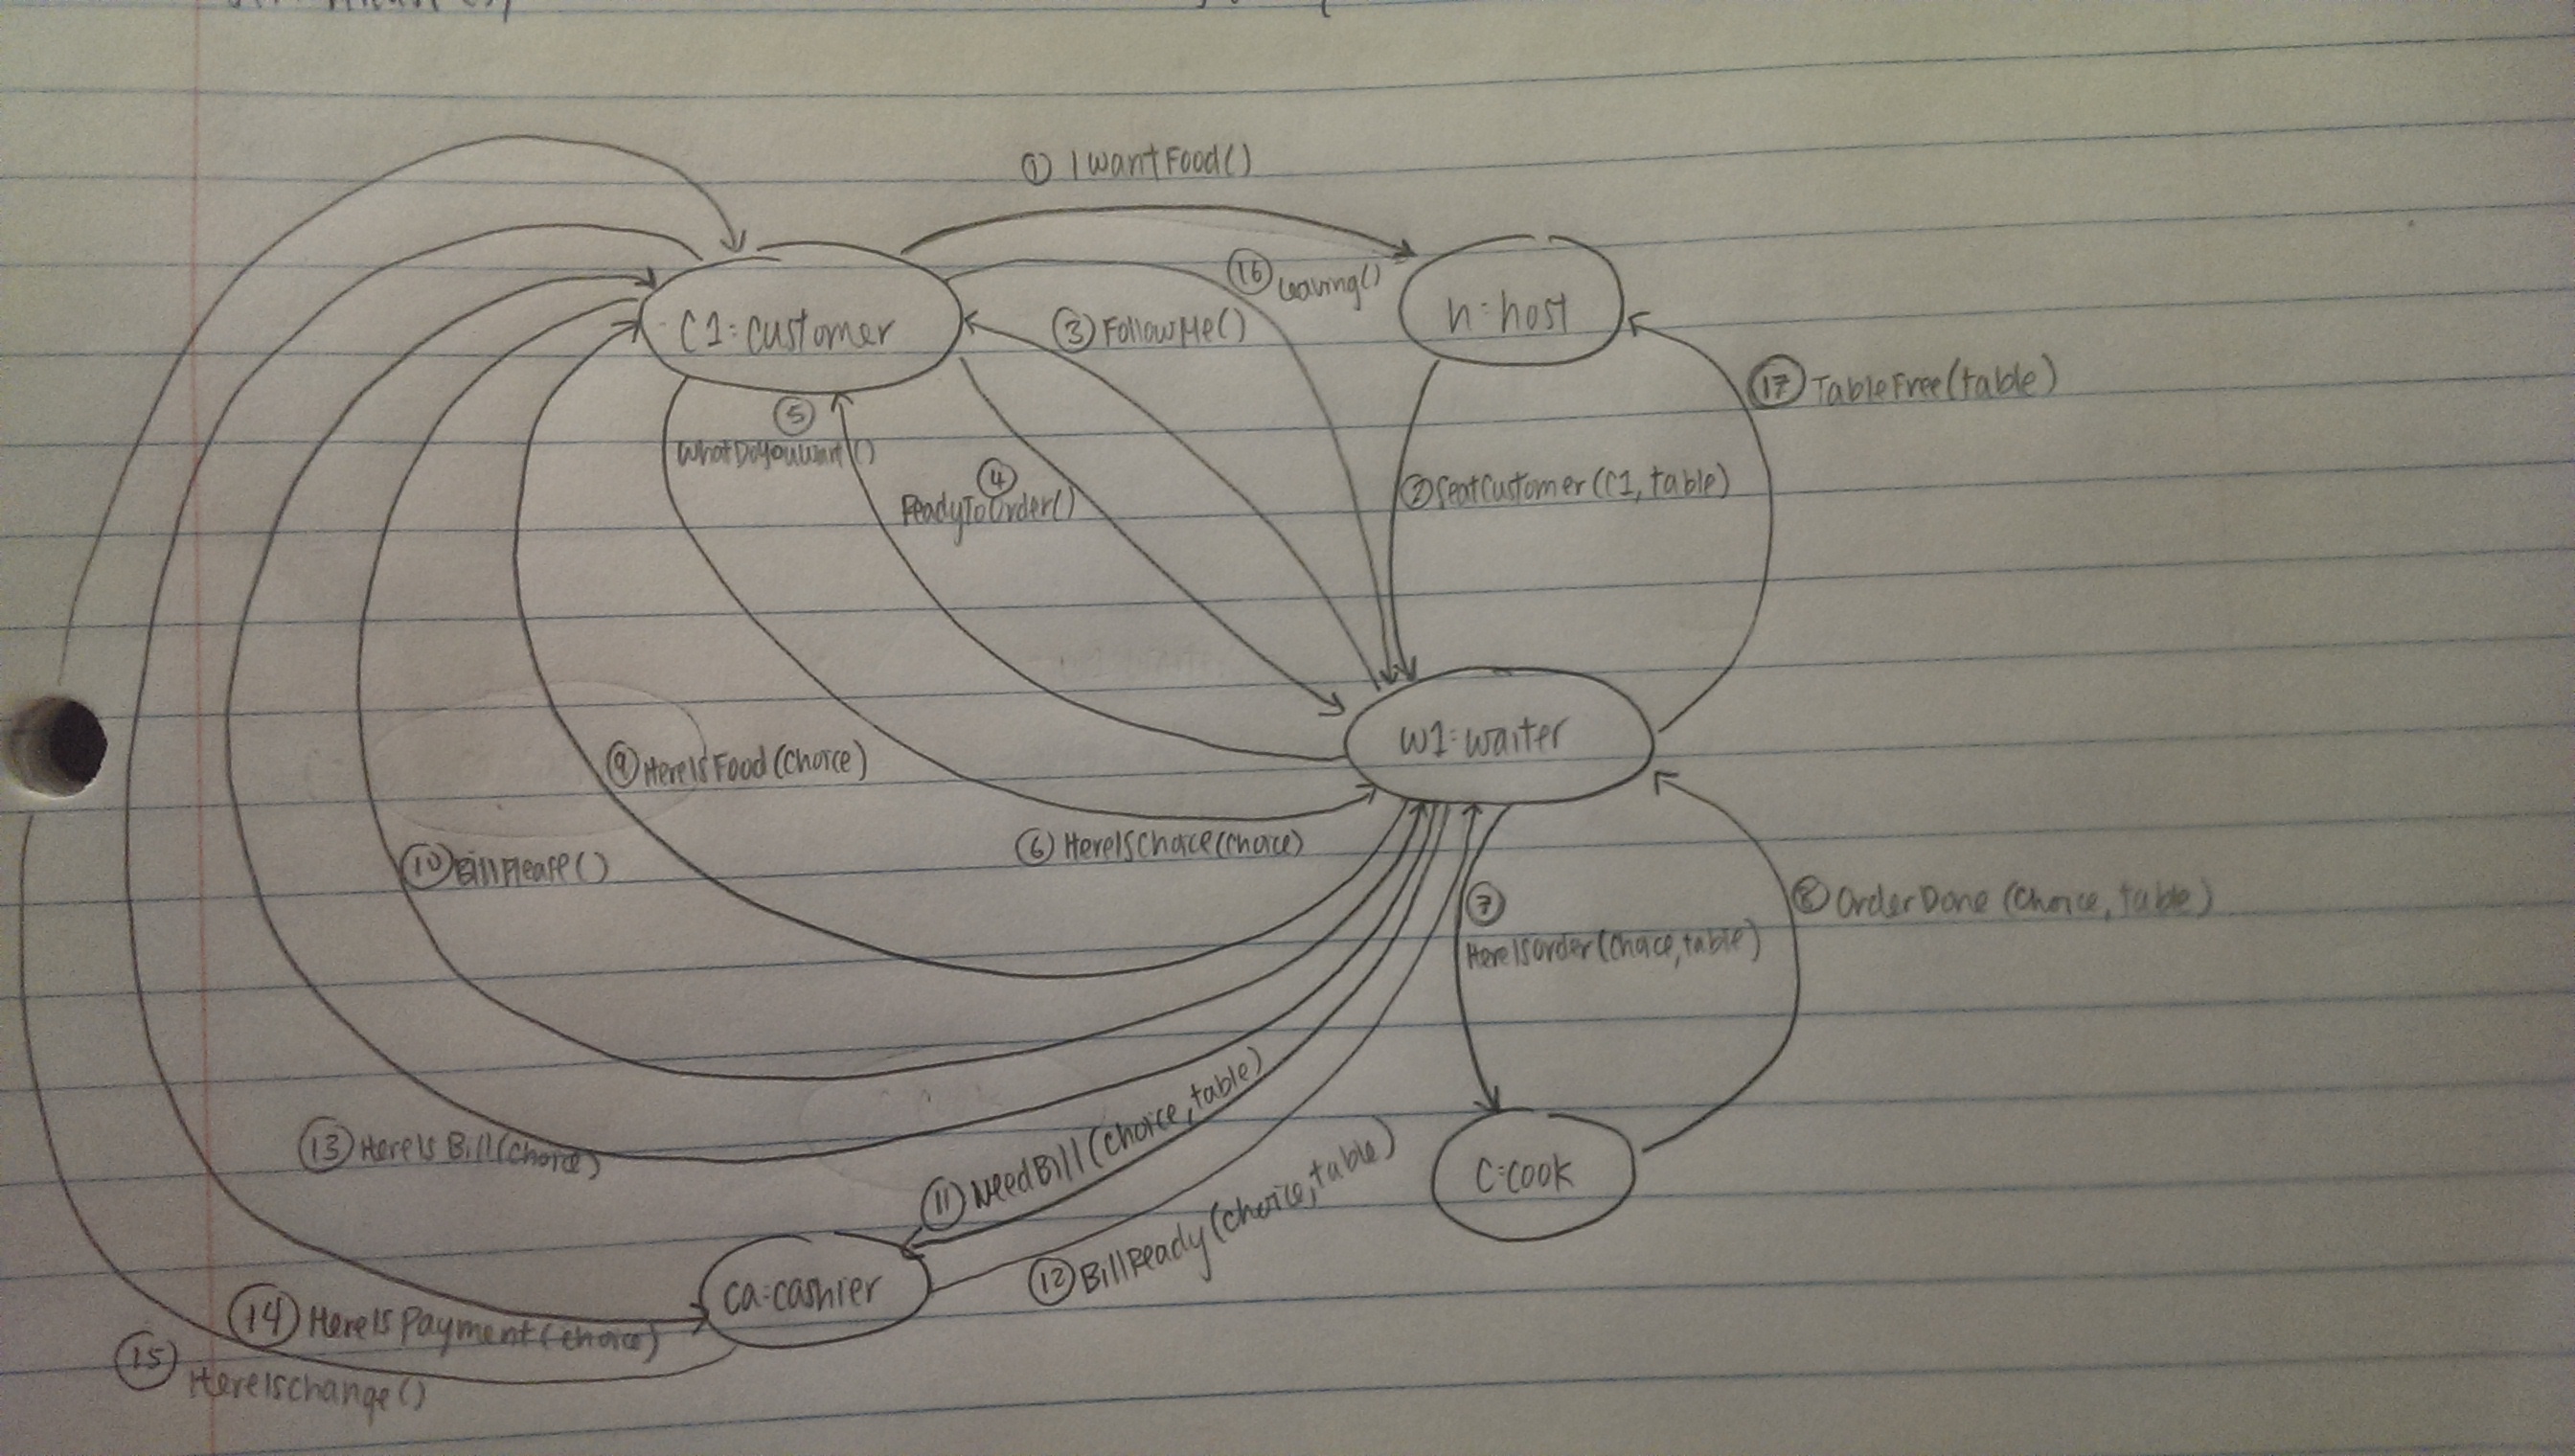 ① IWantFood()
⑯ Leaving()
C1:customer
h:host
③ FollowMe()
⑰ TableFree(table)
⑤
WhatDoYouWant()
④
ReadyToOrder()
② SeatCustomer(C1, table)
W1:waiter
⑨ HereIsFood(choice)
⑥ HereIsChoice(choice)
⑩ BillPlease()
⑦
HereIsOrder(choice, table)
⑧ OrderDone (choice, table)
⑪ NeedBill(choice, table)
⑬ HereIsBill(choice)
⑫ BillReady(choice, table)
C:cook
ca:cashier
⑭ HereIsPayment(choice)
⑮
HereIsChange()